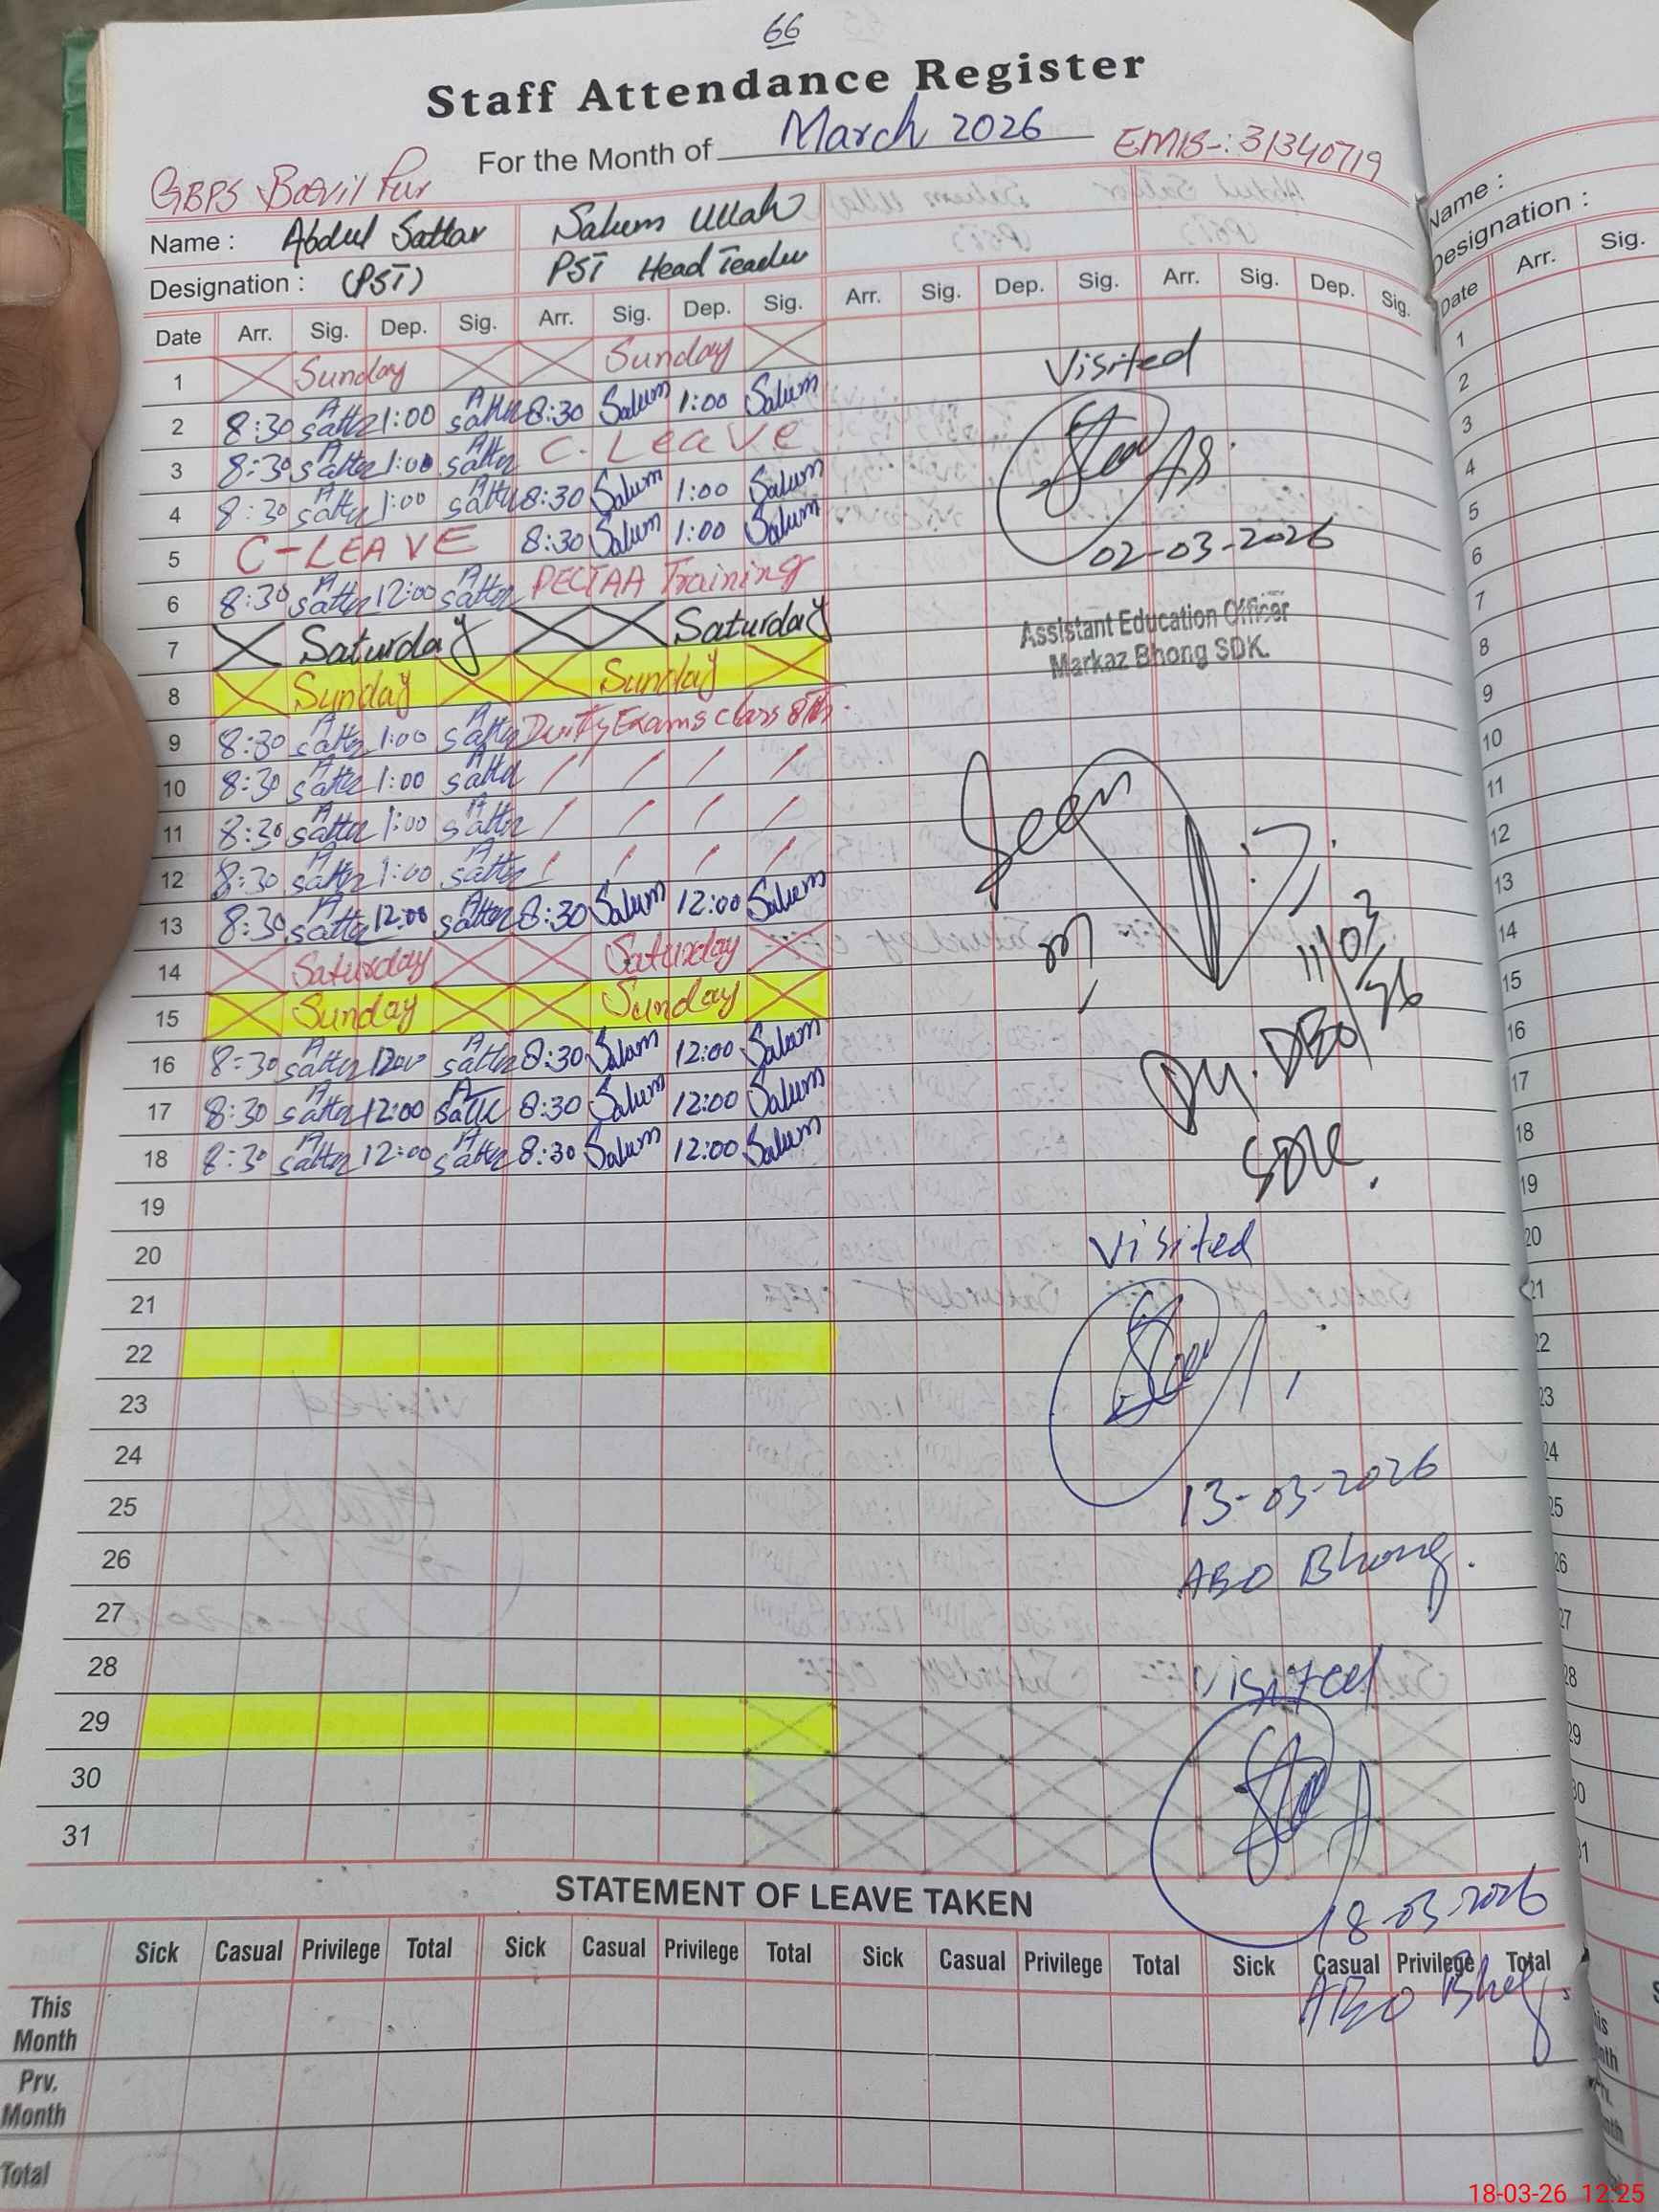 66
Staff Attendance Register
For the Month of March 2026
GBPS EMIS-: 31340719
Name : Abdul Sattar Salum Ullah
Designation : (PST) PST Head Teacher
Date Arr. Sig. Dep. Sig. Arr. Sig. Dep. Sig. Arr. Sig. Dep. Sig. Arr. Sig. Dep. Sig.
1 Sunday Sunday
2 8:30 A Satter 1:00 A Satter 8:30 Salum 1:00 Salum
3 8:30 A Satter 1:00 A Satter C. Leave
4 8:30 A Satter 1:00 A Satter 8:30 Salum 1:00 Salum
5 C-LEAVE 8:30 Salum 1:00 Salum
6 8:30 A Satter 12:00 A Satter PECTAA Training
7 Saturday Saturday
8 Sunday Sunday
9 8:30 A Satter 1:00 A Satter Duity Exams class 8th.
10 8:30 A Satter 1:00 A Satter / / / /
11 8:30 A Satter 1:00 A Satter / / / /
12 8:30 A Satter 1:00 A Satter / / / /
13 8:30 A Satter 12:00 A Satter 8:30 Salum 12:00 Salum
14 Saturday Saturday
15 Sunday Sunday
16 8:30 A Satter 12:00 A Satter 8:30 Salum 12:00 Salum
17 8:30 A Satter 12:00 A Satter 8:30 Salum 12:00 Salum
18 8:30 A Satter 12:00 A Satter 8:30 Salum 12:00 Salum
19
20
21
22
23
24
25
26
27
28
29
30
31
Visited
02-03-2026
Assistant Education Officer
Markaz Bhong SDK.
Seen
11/03/26
Dy. DEO
SDK.
Visited
13-03-2026
AEO Bhong.
Visited
18-03-2026
AEO Bhong
STATEMENT OF LEAVE TAKEN
Sick Casual Privilege Total Sick Casual Privilege Total Sick Casual Privilege Total Sick Casual Privilege Total
This Month
Prv. Month
Total
Name :
Designation :
Date Arr. Sig.
1
2
3
4
5
6
7
8
9
10
11
12
13
14
15
16
17
18
19
20
21
22
23
24
25
26
27
28
29
30
31
18-03-26 12:25